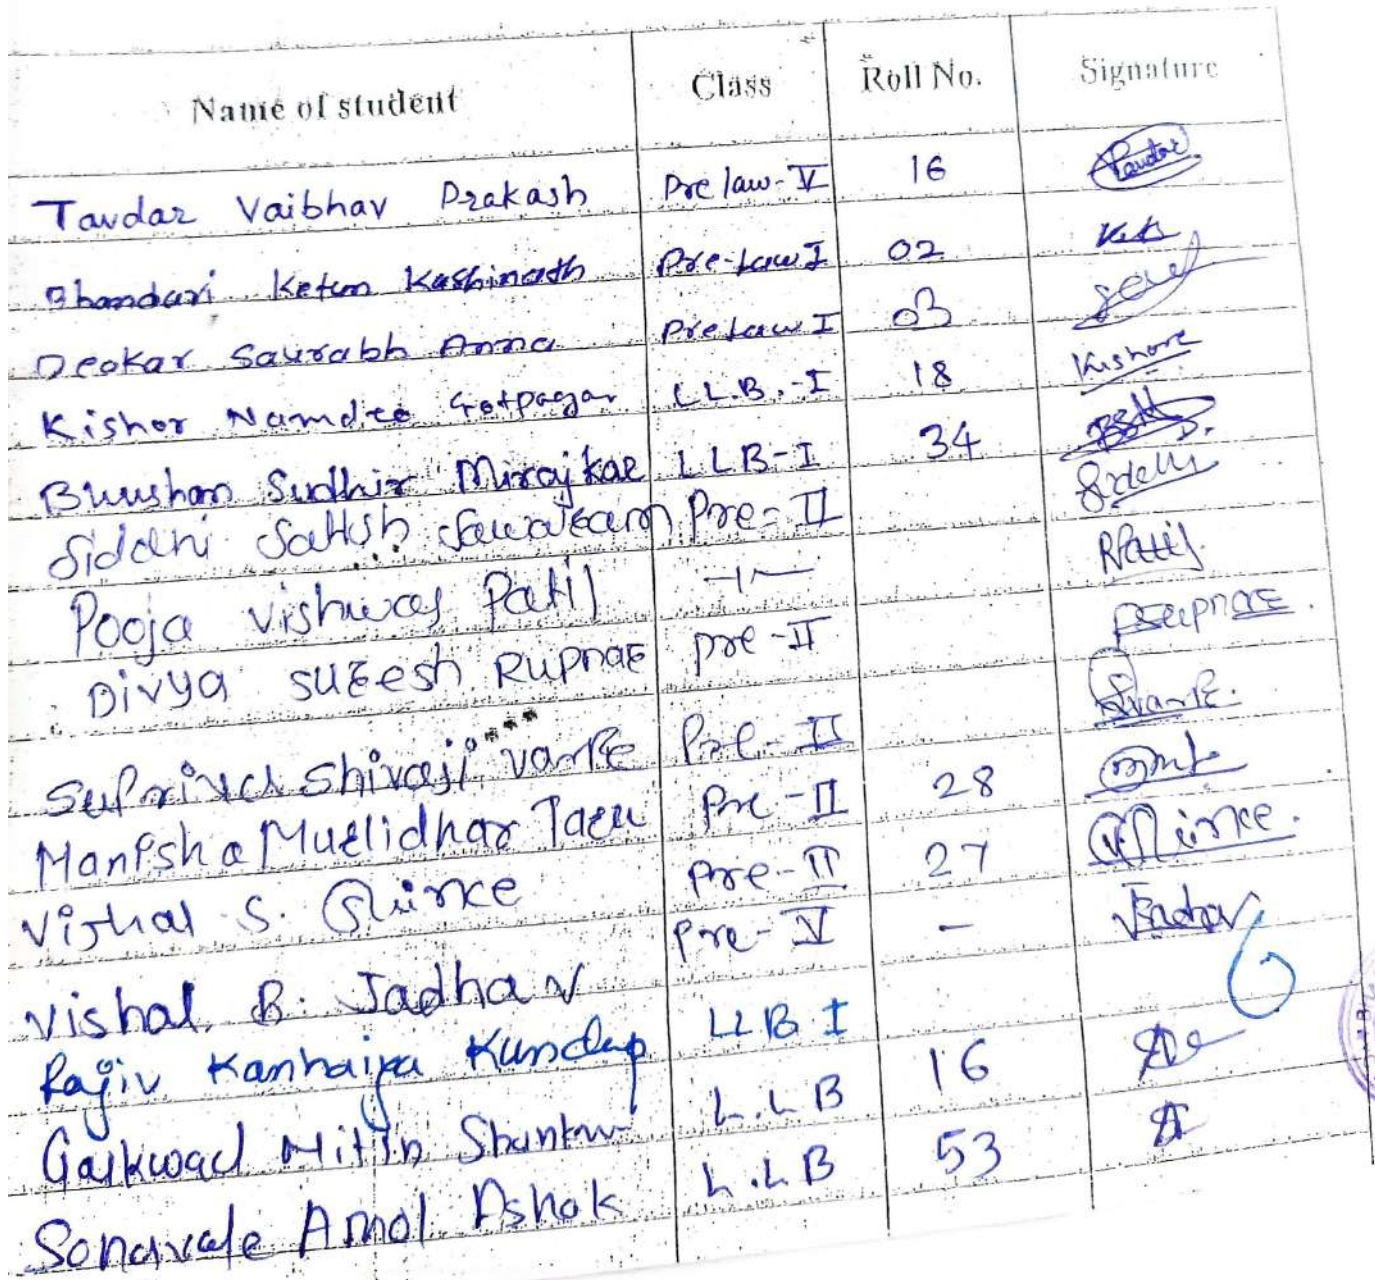 Name of student Class Roll No. Signature
Tavdar Vaibhav Prakash Pre law-V 16 Tavdar
Bhandari Ketan Kashinath Pre-Law I 02
Deokar Saurabh Anna Pre Law I 03
Kishor Namdeo Gotpagar L.L.B.-I 18 Kishore
Bhushan Sudhir Mirajkar LLB-I 34
Siddhi Satish Sawatkam Pre-II
Pooja Vishwas Patil -11- RPatil
Divya Suresh Rupnar pre-II
Supriya Shivaji Varpe Pre-II
Manisha Murlidhar Pre-II 28
Vishal S. Pre-II 27
Vishal. B. Jadhav Pre-V - VJadhav
Rajiv Kanhaiya LLB I
Gaikwad Nitin L.L.B 16
Sonavale Amol Ashok L.L.B 53